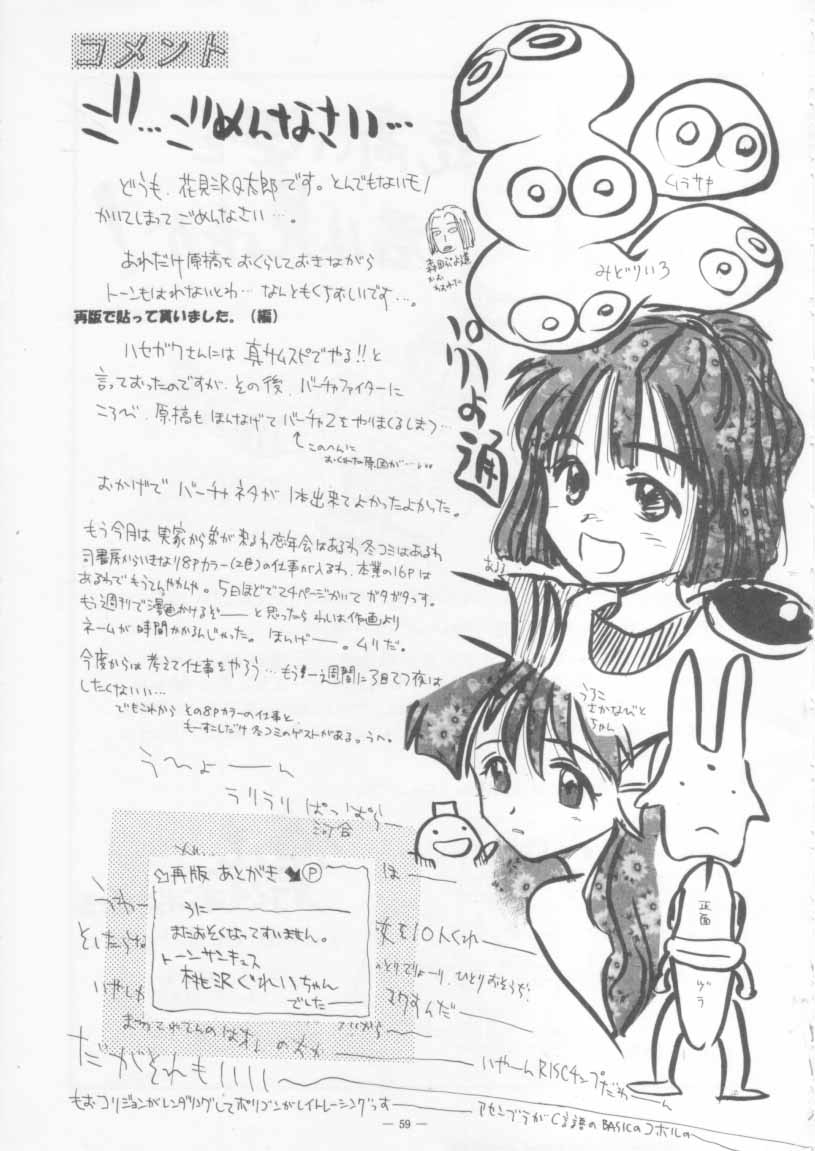 コメント
ゴ…ごめんなさい…
どうも、花見沢Q太郎です。とんでもないモノ
かいてしまって ごめんなさい…。
あれだけ原稿を おくらしておきながら
トーンもはれないとわ… なんともくちおしいです…。
再版で貼って貰いました。(編)
ハセガワさんには 真サムスピでやる!!と
言っておったのですが、その後、バーチャファイターに
ころび、原稿も ほんなげて バーチャ2をやりまくるしまつ…
↑このへんに
おくれた原因が…
おかげで バーチャネタが 1本出来てよかったよかった。
もう今月は 実家から弟が来るわ 忘年会はあるわ 冬コミはあるわ
司書房からいきなり8Pカラー(2色)の仕事が入るわ、本業の16Pは
あるわで もうてんやわんや。5日ほどで24ページかいて ガタガタっす。
もう週刊で漫画かけるぞー と思ったら わしは作画より
ネームが時間かかるんじゃった。 ほんげー。ムリだ。
今度からは 考えて仕事をやろう… もう 一週間に3日てつ夜は
したくない…
でもこれから その8Pカラーの仕事と、
もーすこしだけ 冬コミのゲストがある。うへ。
うーひょーーん
ラリラリ ぱっぱらー
河合
再版 あとがき P
うに
またおそくなってすいません。
トーンサンキュス
桃沢ぐれいちゃん
でした
うわー
は
を10人くれ
ひとりおそうぢ!
だがそれも
いやーん RISCチップだわーん
もおコリジョンがレンダリングしてポリゴンがレイトレーシングっす
アセンブラがC言語のBASICのコボルの
くらサキ
みどりいろ
うろこ
さかなびと
ちゃん
正面
ヅラ
― 59 ―